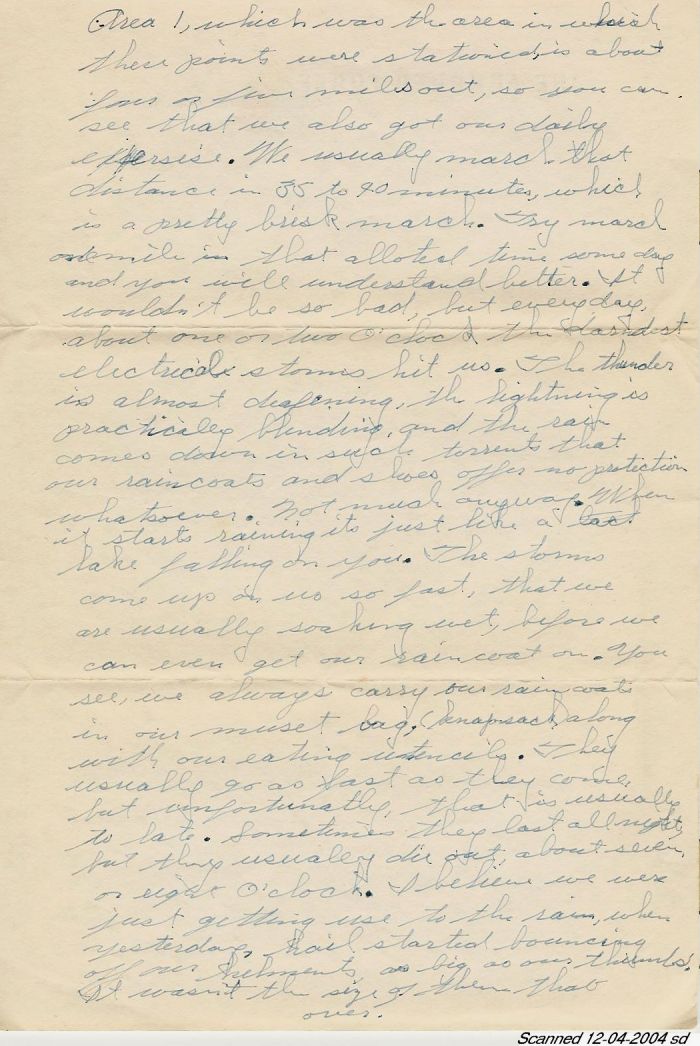 Area 1, which was the area in which
these points were stationed, is about
four or five miles out, so you can
see that we also got our daily
exersise. We usually march that
distance in 35 to 40 minutes, which
is a pretty brisk march. Try march
one mile in that alloted time some day
and you will understand better. It
wouldn't be so bad, but everyday,
about one or two O'clock the darndest
electrical storms hit us. The thunder
is almost deafening, the lightning is
practically blinding, and the rain
comes down in such torrents that
our raincoats and shoes offer no protection
whatsoever. Not much anyway. When
it starts raining its just like a
lake falling on you. The storms
come up on us so fast, that we
are usually soaking wet, before we
can even get our raincoat on. You
see, we always carry our raincoats
in our muset bag, (knapsack) along
with our eating utencils. They
usually go as fast as they come,
but unfortunatly, that is usually
to late. Sometimes they last all night,
but they usualey die out, about seven
or eight O'clock. I believe we were
just getting use to the rain, when
yesterday, hail started bouncing
off our helments, as big as our thumbs.
It wasn't the size of them that
over.
Scanned 12-04-2004 sd